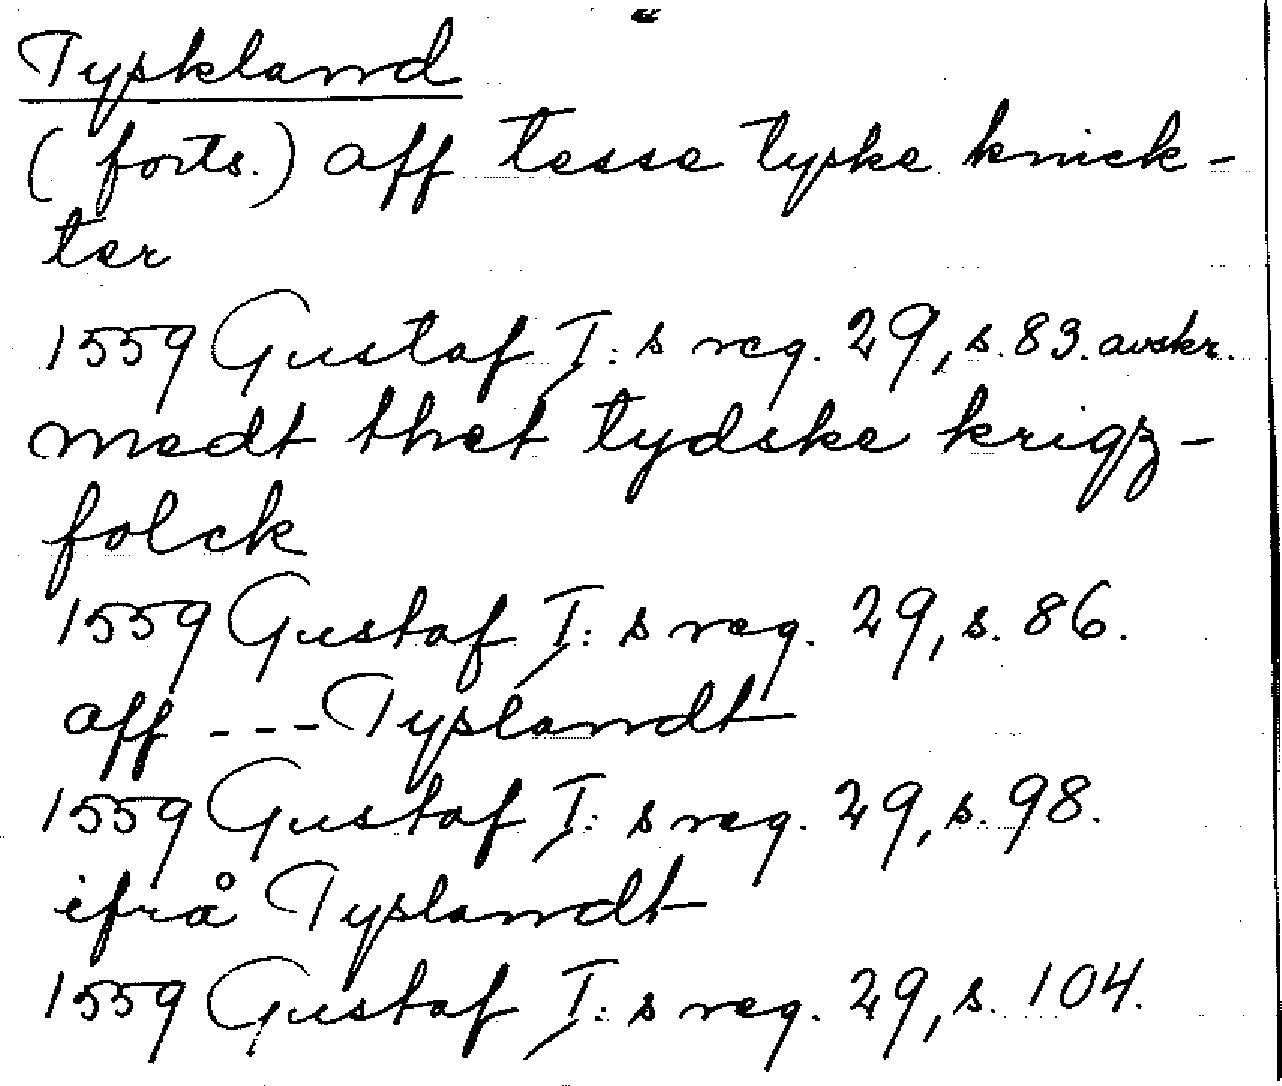 Tyskland
(forts.) aff tesse tyske knick-
ter
1559 Gustaf I:s reg. 29, s. 83. avskr.
medt thet tydske krigz-
folck
1559 Gustaf I:s reg. 29, s. 86.
aff --- Tyslandt
1559 Gustaf I:s reg. 29, s. 98.
ifrå Tyslandt
1559 Gustaf I:s reg. 29, s. 104.